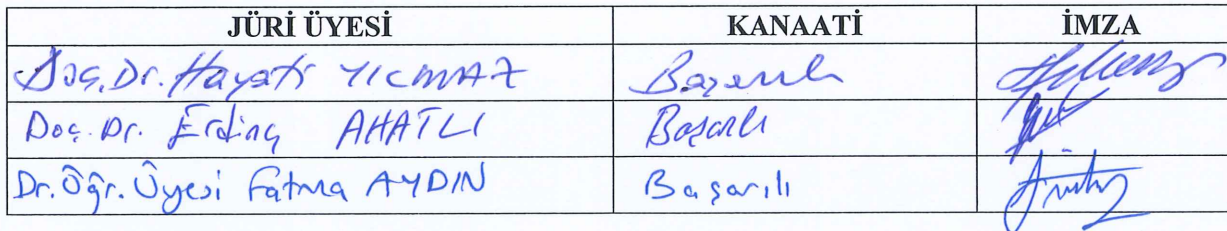 JÜRİ ÜYESİ KANAATİ İMZA
Doç. Dr. Hayati YILMAZ Başarılı
Doç. Dr. Erdinç AHATLI Başarılı
Dr. Öğr. Üyesi Fatma AYDIN Başarılı